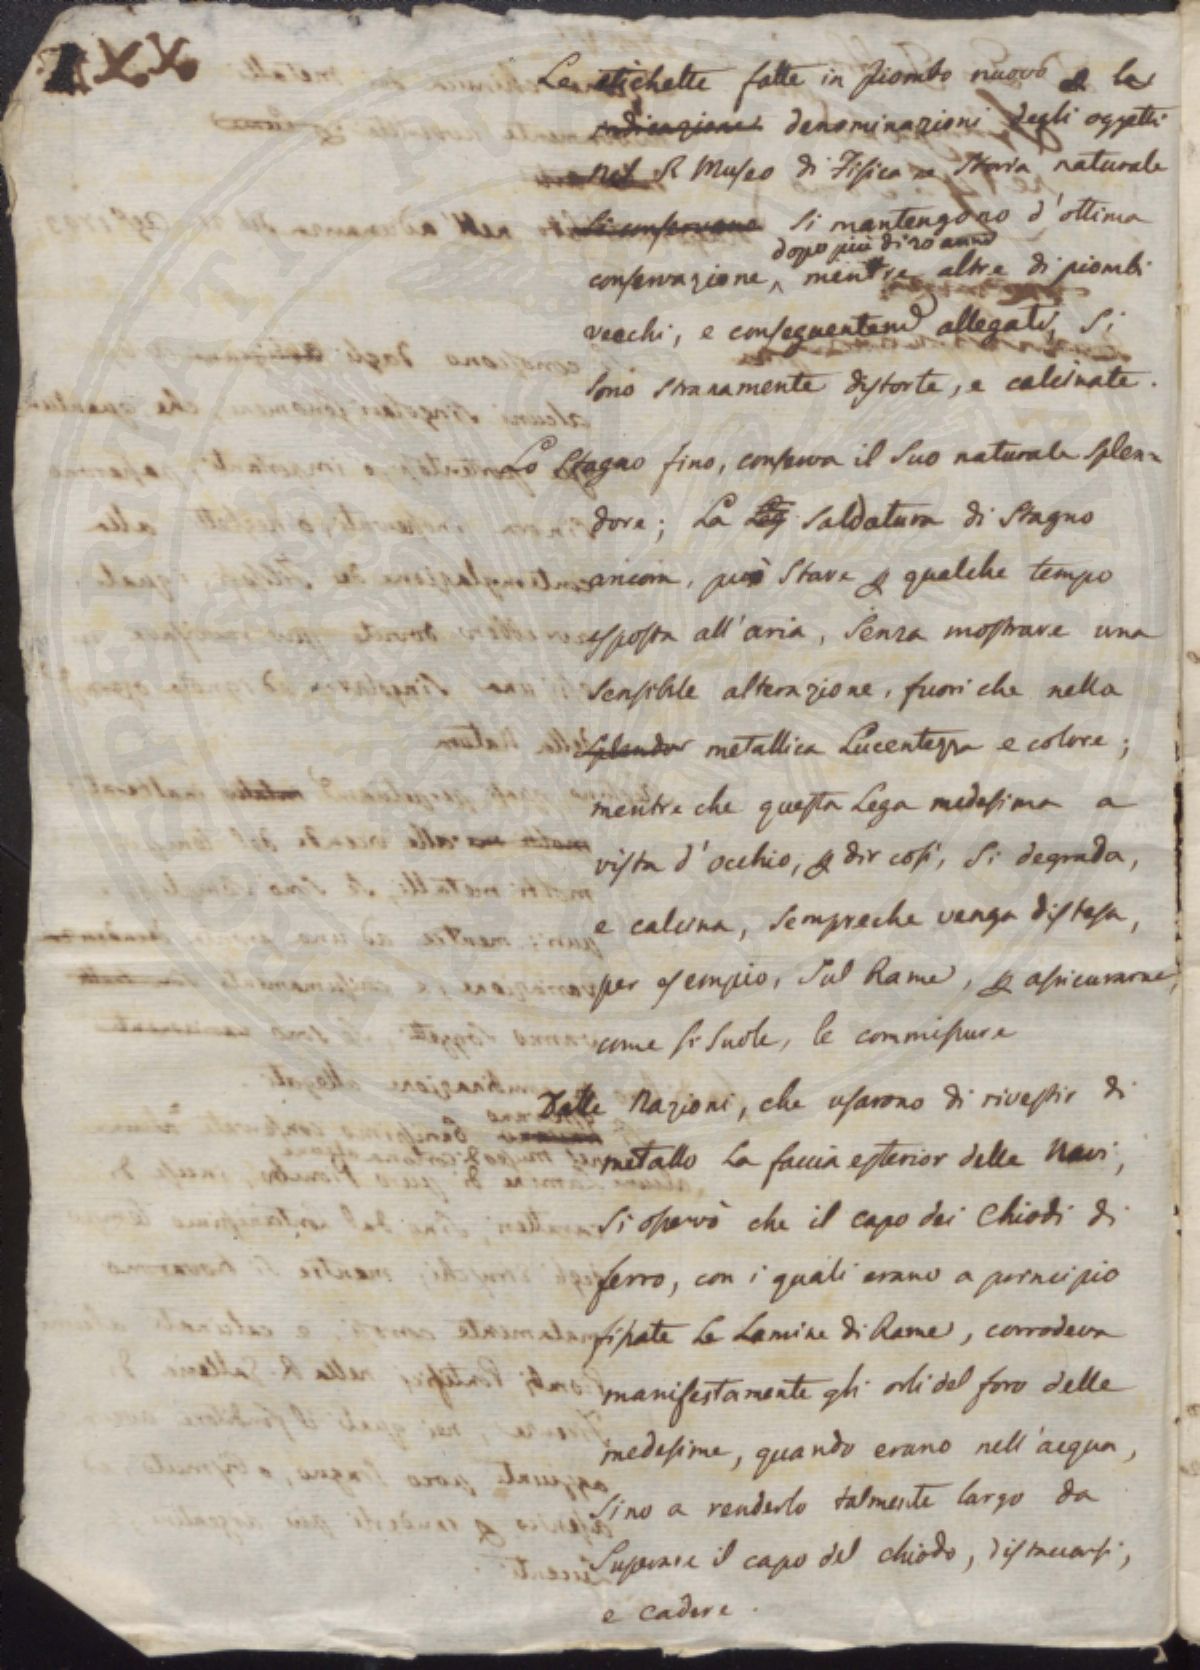 Le etichette fatte in Piombo nuovo p le
indicazione denominazioni degli oggetti
nel R Museo di Fisica e Storia naturale
si conservano si mantengono d'ottima
dopo più di 20 anni
conservazione, mentre altre di piombi
vecchi, e conseguentem.e allegati, si
sono stranamente distorte, e calcinate.
Lo Stagno fino, conserva il suo naturale splen=
dore; La Leg saldatura di stagno
ancora, può stare p qualche tempo
esposta all'aria, senza mostrare una
sensibile alterazione, fuori che nella
splendor metallica Lucentezza e colore;
mentre che questa Lega medesima a
vista d'occhio, p dir così, si degrada,
e calcina, sempreche venga distesa,
per esempio, sul Rame, p assicurarne,
come si suole, le commissure
Dalle Nazioni, che usarono di rivestir di
metallo La faccia esterior delle Navi,
si osservò che il capo dei Chiodi di
ferro, con i quali erano a principio
fissate Le Lamine di Rame, corrodeva
manifestamente gli orli del foro delle
medesime, quando erano nell'acqua,
sino a renderlo talmente largo da
superare il capo del chiodo, distaccarsi,
e cadere.